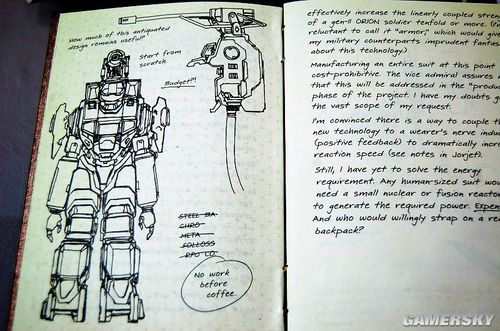 How much of this antiquated
design remains useful?
Start from
scratch.
Budget?!
STEEL BA
CHRO
META
FOLLOSS
RPO CO
No work
before
coffee.
effectively increase the linearly coupled stren
of a gen-II ORION soldier tenfold or more. (I'm
reluctant to call it "armor," which would give
my military counterparts imprudent fantas
about this technology.)
Manufacturing an entire suit at this point
cost-prohibitive. The vice admiral assures
that this will be addressed in the "produc
phase of the project. I have my doubts
the vast scope of my request.
I'm convinced there is a way to couple th
new technology to a wearer's nerve induc
(positive feedback) to dramatically incre
reaction speed (see notes in Jorjet).
Still, I have yet to solve the energy
requirement. Any human-sized suit wou
need a small nuclear or fusion reactor
to generate the required power. Expen
And who would willingly strap on a rea
backpack?
GAMERSKY